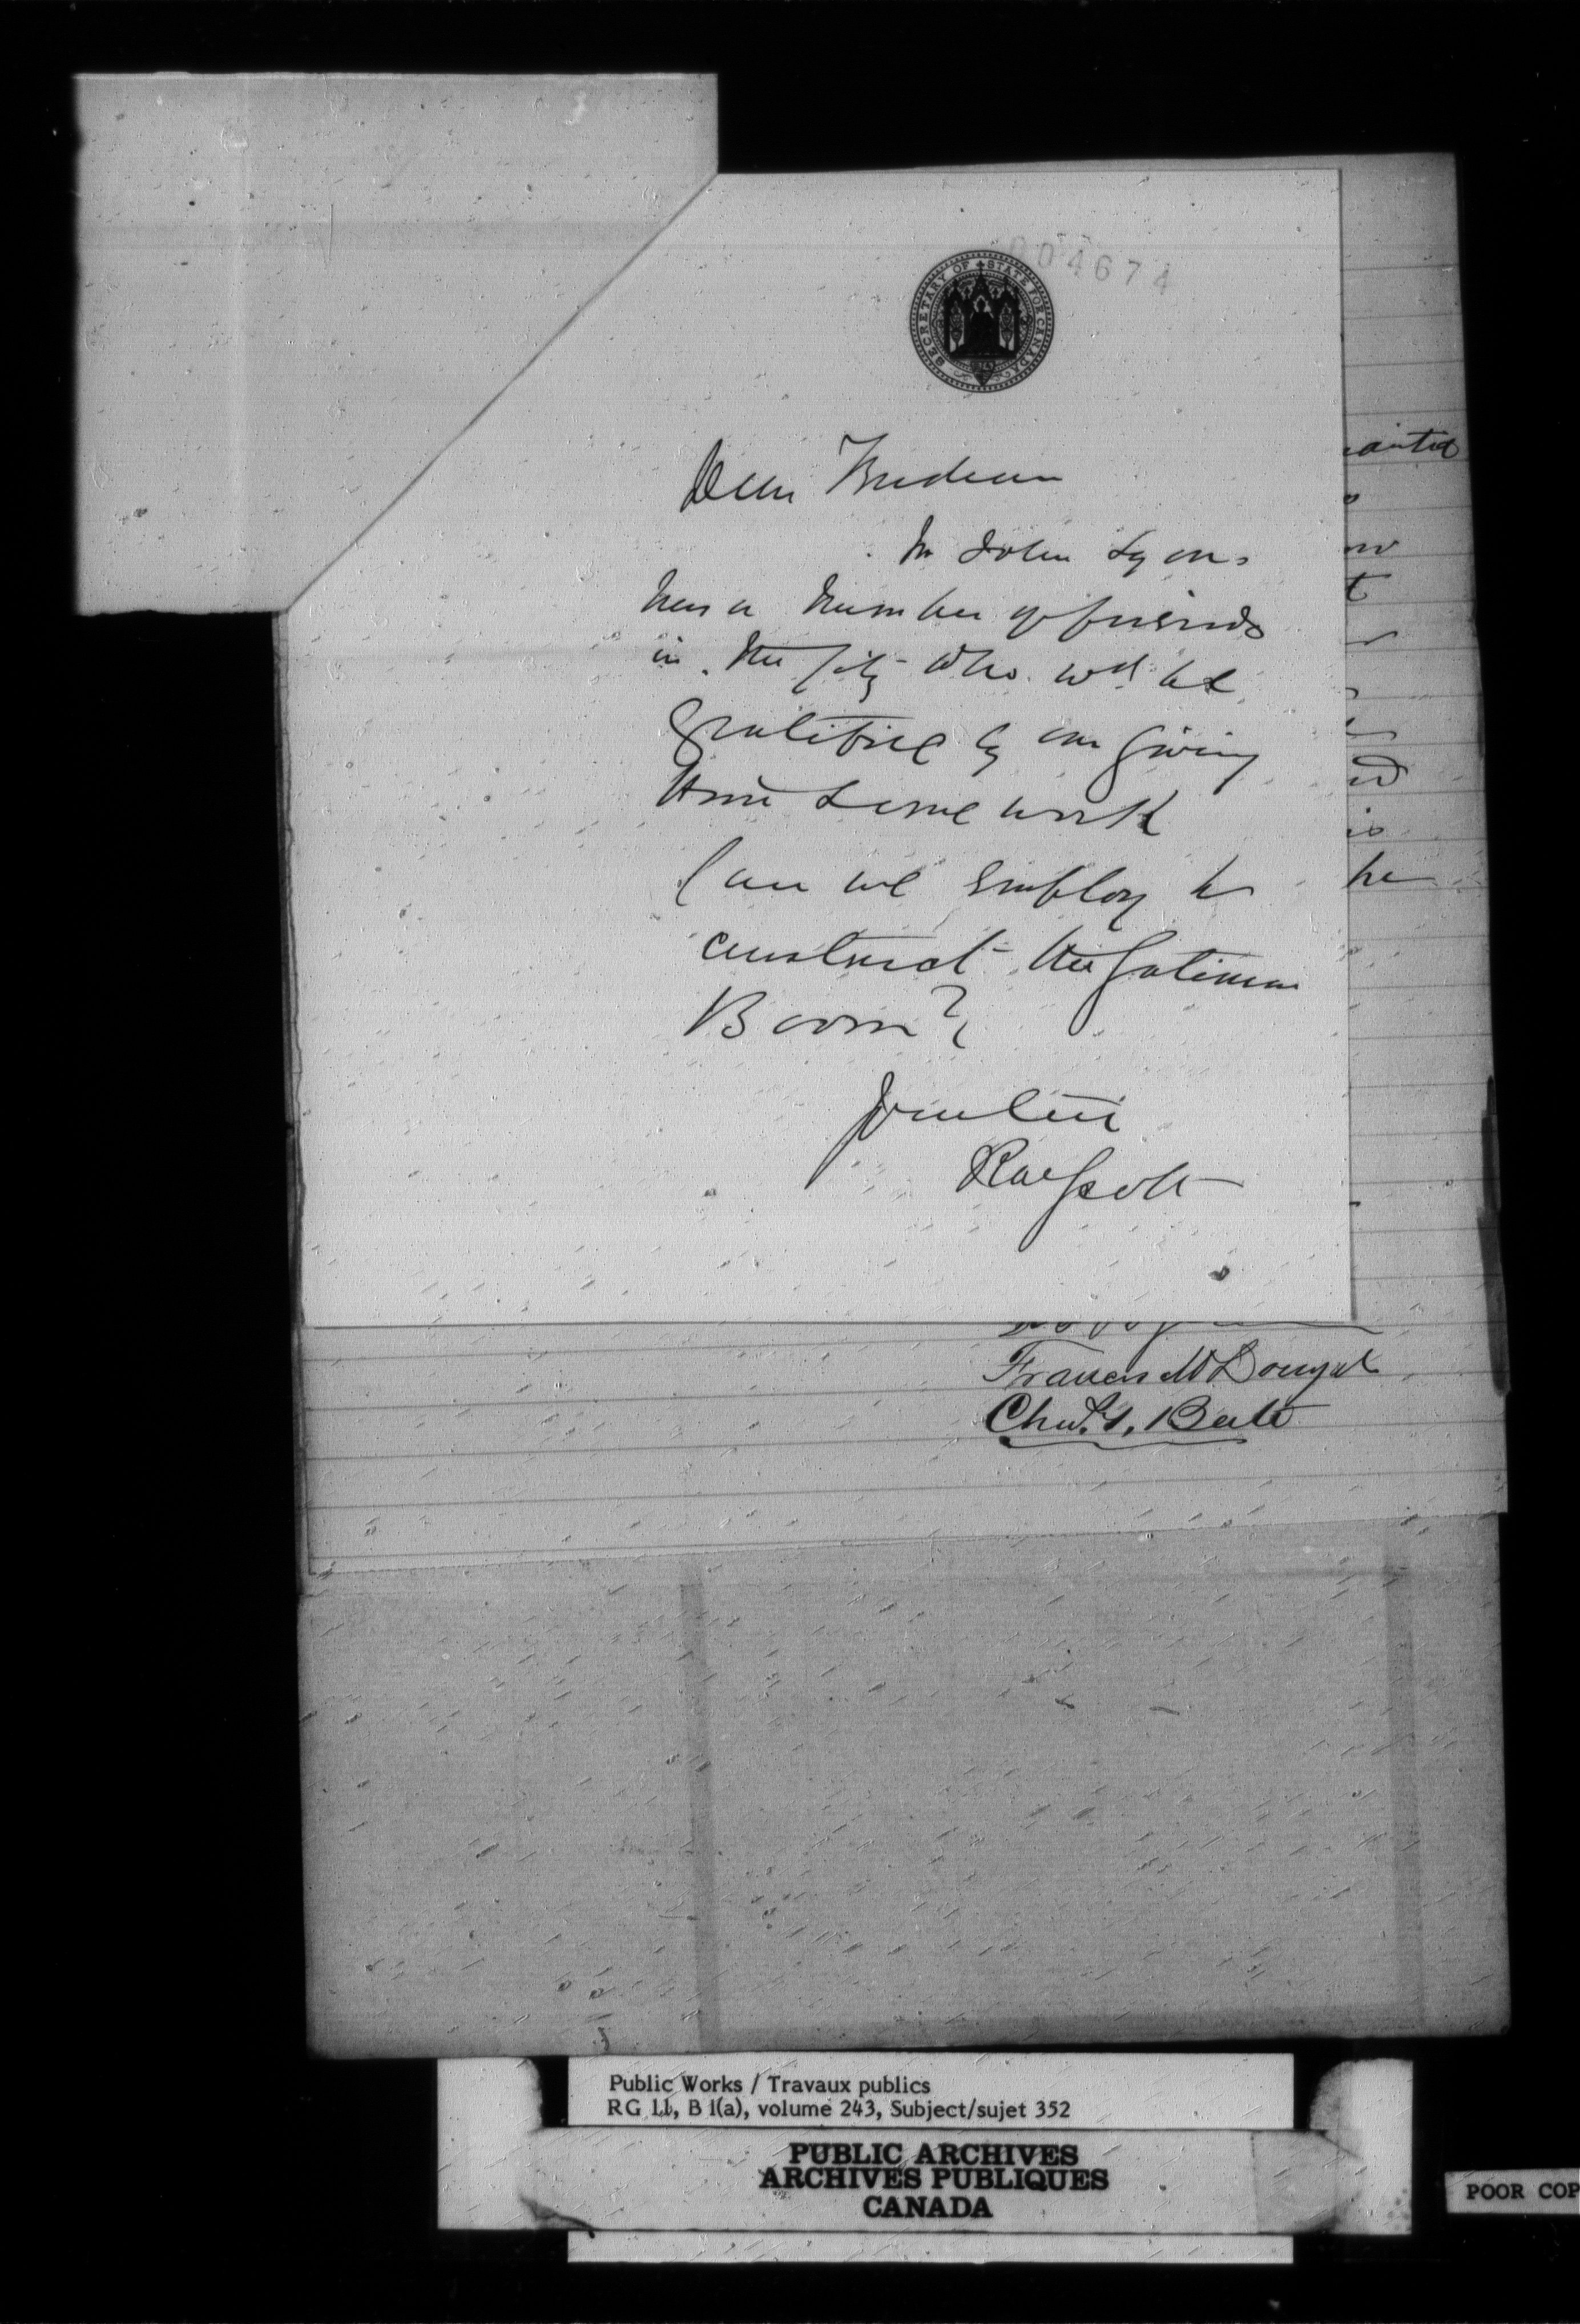 004674
SECRETARY OF STATE FOR CANADA
Dear Trudeau
Mr John Lyons
has a number of friends
in the City who wd be
gratified by our giving
him some work
Can we employ h
construct the Gatineau
Boom?
Yours truly
RW Scott
wanted
ow
t
is
he
Francis McDougal
Chas. T. Bate
Public Works / Travaux publics
RG 11, B 1(a), volume 243, Subject/sujet 352
PUBLIC ARCHIVES
ARCHIVES PUBLIQUES
CANADA
POOR COP